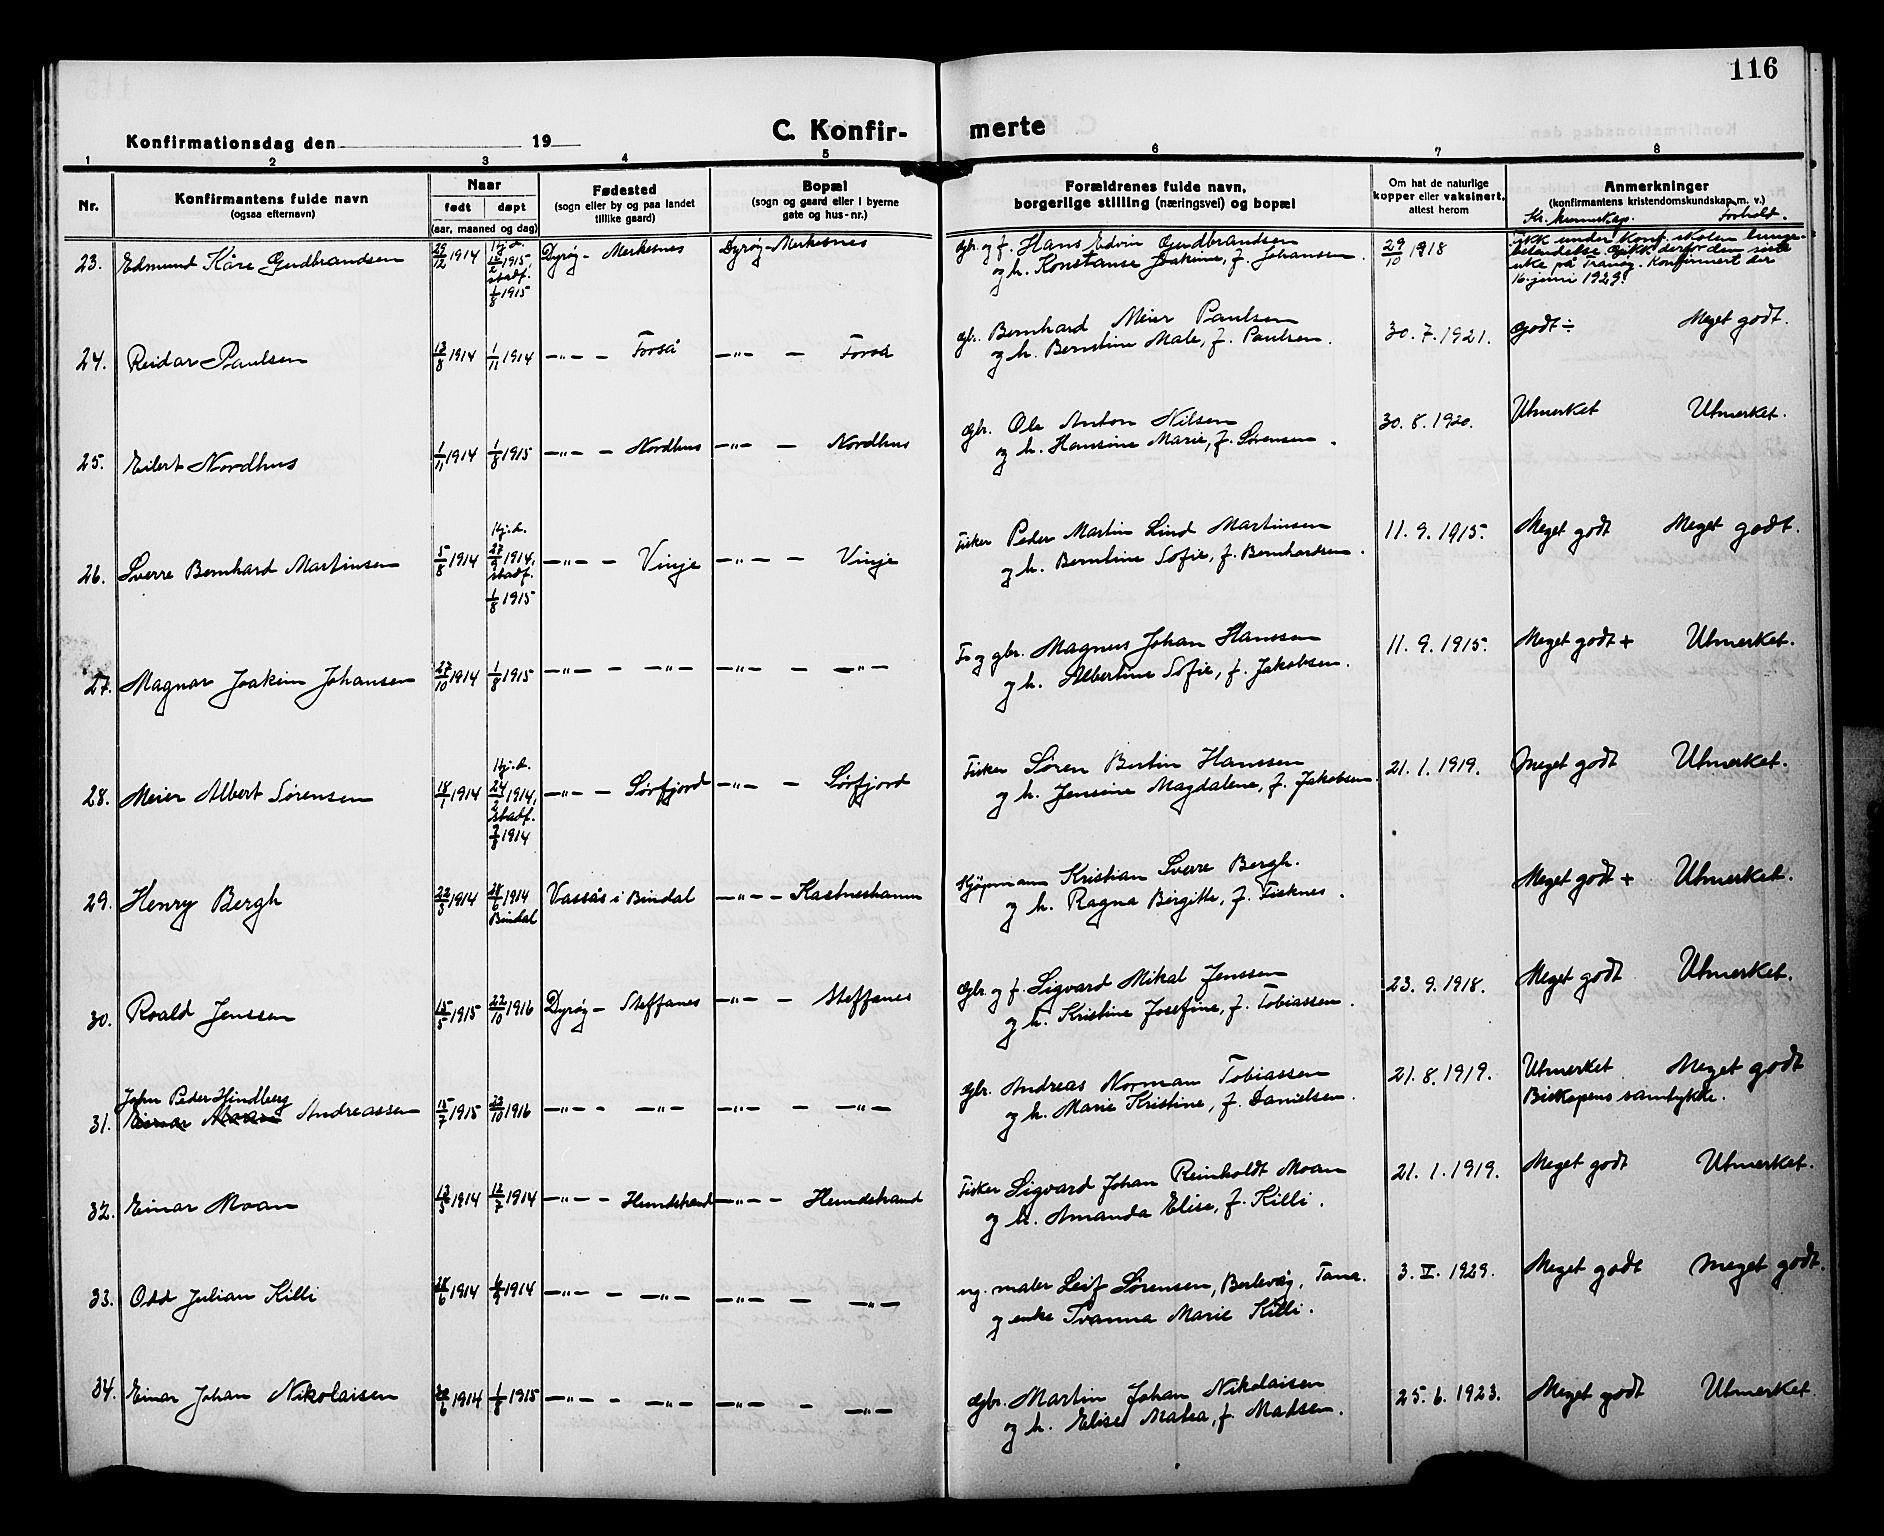 116
C. Konfir- merte
Konfirmationsdag den 19
1 2 3 4 5 6 7 8
Nr. Konfirmantens fulde navn (ogsaa efternavn) Naar født døpt (aar, maaned og dag) Fødested (sogn eller by og paa landet tillike gaard) Bopæl (sogn og gaard eller i byerne gate og hus-nr.) Forældrenes fulde navn, borgerlige stilling (næringsvei) og bopæl Om hat de naturlige kopper eller vaksinert, attest herom Anmerkninger (konfirmantens kristendomskundskap m. v.)
Kr. kunnskap. Forhold.
23. Edmund Kåre Gudbrandsen 29/12 1914 Hj.d. 1915 stadf. 1/8 1915 Dyrøy - Merkesnes Dyrøy - Merkesnes Gbr. og f. Hans Edvin Gudbrandsen
og h. Konstanse Joakime, f. Johansen. 29/10 1918 Fikk under konf. skolen lunge-
betendelse. Gikk derfor den siste
uke på Tranøy. Konfirmert der
16. juni 1929.
24. Reidar Paulsen 13/8 1914 1/11 1914 —"— – Forså —"— – Forså Gbr. Bernhard Meier Paulsen
og h. Berntine Male, f. Paulsen. 30.7.1921. Godt ÷ Meget godt.
25. Eilert Nordhus 1/11 1914 1/8 1915 —"— – Nordhus —"— – Nordhus Gbr. Ole Anton Nilsen
og h. Hansine Marie, f. Sørensen. 30.8.1920. Utmerket Utmerket.
26. Sverre Bernhard Martinsen 5/8 1914 Hj.d. 27/9 1914, stadf. 1/8 1915 —"— – Vinje —"— – Vinje Fisker Peder Martin Lind Martinsen
og h. Berntine Sofie, f. Bernhardsen. 11.9.1915. Meget godt Meget godt.
27. Magnar Joakim Johansen 27/10 1914 1/8 1915 —"— – —"— —"— – —"— F. og gbr. Magnus Johan Hanssen
og h. Albertine Sofie, f. Jakobsen. 11.9.1915. Meget godt + Utmerket.
28. Meier Albert Sørensen 18/1 1914 Hj.d. 24/2 1914, stadf. 1914 —"— – Sørfjord —"— – Sørfjord Fisker Søren Bertin Hanssen
og h. Jensine Magdalene, f. Jakobsen. 21.1.1919. Meget godt Utmerket.
29. Henry Bergh 1914 28/6 1914 Bindal Vassås i Bindal —"— – Kastneshamn Kjøpmann Kristian Sverre Bergh.
og h. Ragna Birgitte, f. Fisknes. Meget godt + Utmerket.
30. Roald Jenssen 15/5 1915 22/10 1916 Dyrøy – Steffanes —"— – Steffanes Gbr. og f. Sigvard Mikal Jenssen
og h. Kristine Josefine, f. Tobiassen. 23.9.1918. Meget godt Utmerket.
John Peder Hindberg
31. Einar Moan Andreassen 15/7 1915 22/10 1916 —"— – —"— —"— – —"— Gbr. Andreas Norman Tobiassen
og h. Marie Kristine, f. Danielsen. 21.8.1919. Utmerket Meget godt
Biskopens samtykke.
32. Einar Moan 13/5 1914 12/7 1914 —"— – Hundstrand —"— – Hundstrand Fisker Sigvard Johan Reinholdt Moan
og h. Amanda Elise, f. Killi. 21.1.1919. Meget godt Utmerket.
33. Odd Julian Killi 28/6 1914 1914 —"— – —"— —"— – —"— ug. maler Leif Sørensen, Berlevåg, Tana.
og enke Ivanna Marie Killi. 3.V.1929. Meget godt Meget godt.
34. Einar Johan Nikolaisen 1914 1/8 1915 —"— – —"— —"— – —"— Gbr. Martin Johan Nikolaisen
og h. Elise Matea, f. Madsen. 25.6.1923. Meget godt Utmerket.